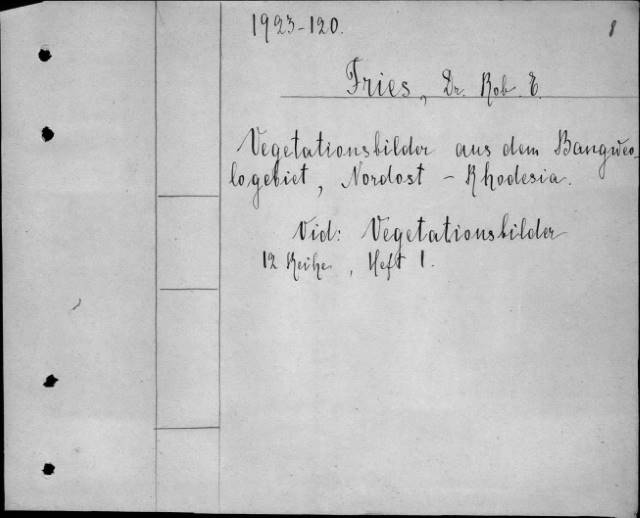 1923-120. 8
Fries, Dr. Rob. E.
Vegetationsbilder aus dem Bangweo-
logebiet, Nordost - Rhodesia.
Vid: Vegetationsbilder
12 Reihe, Heft 1.